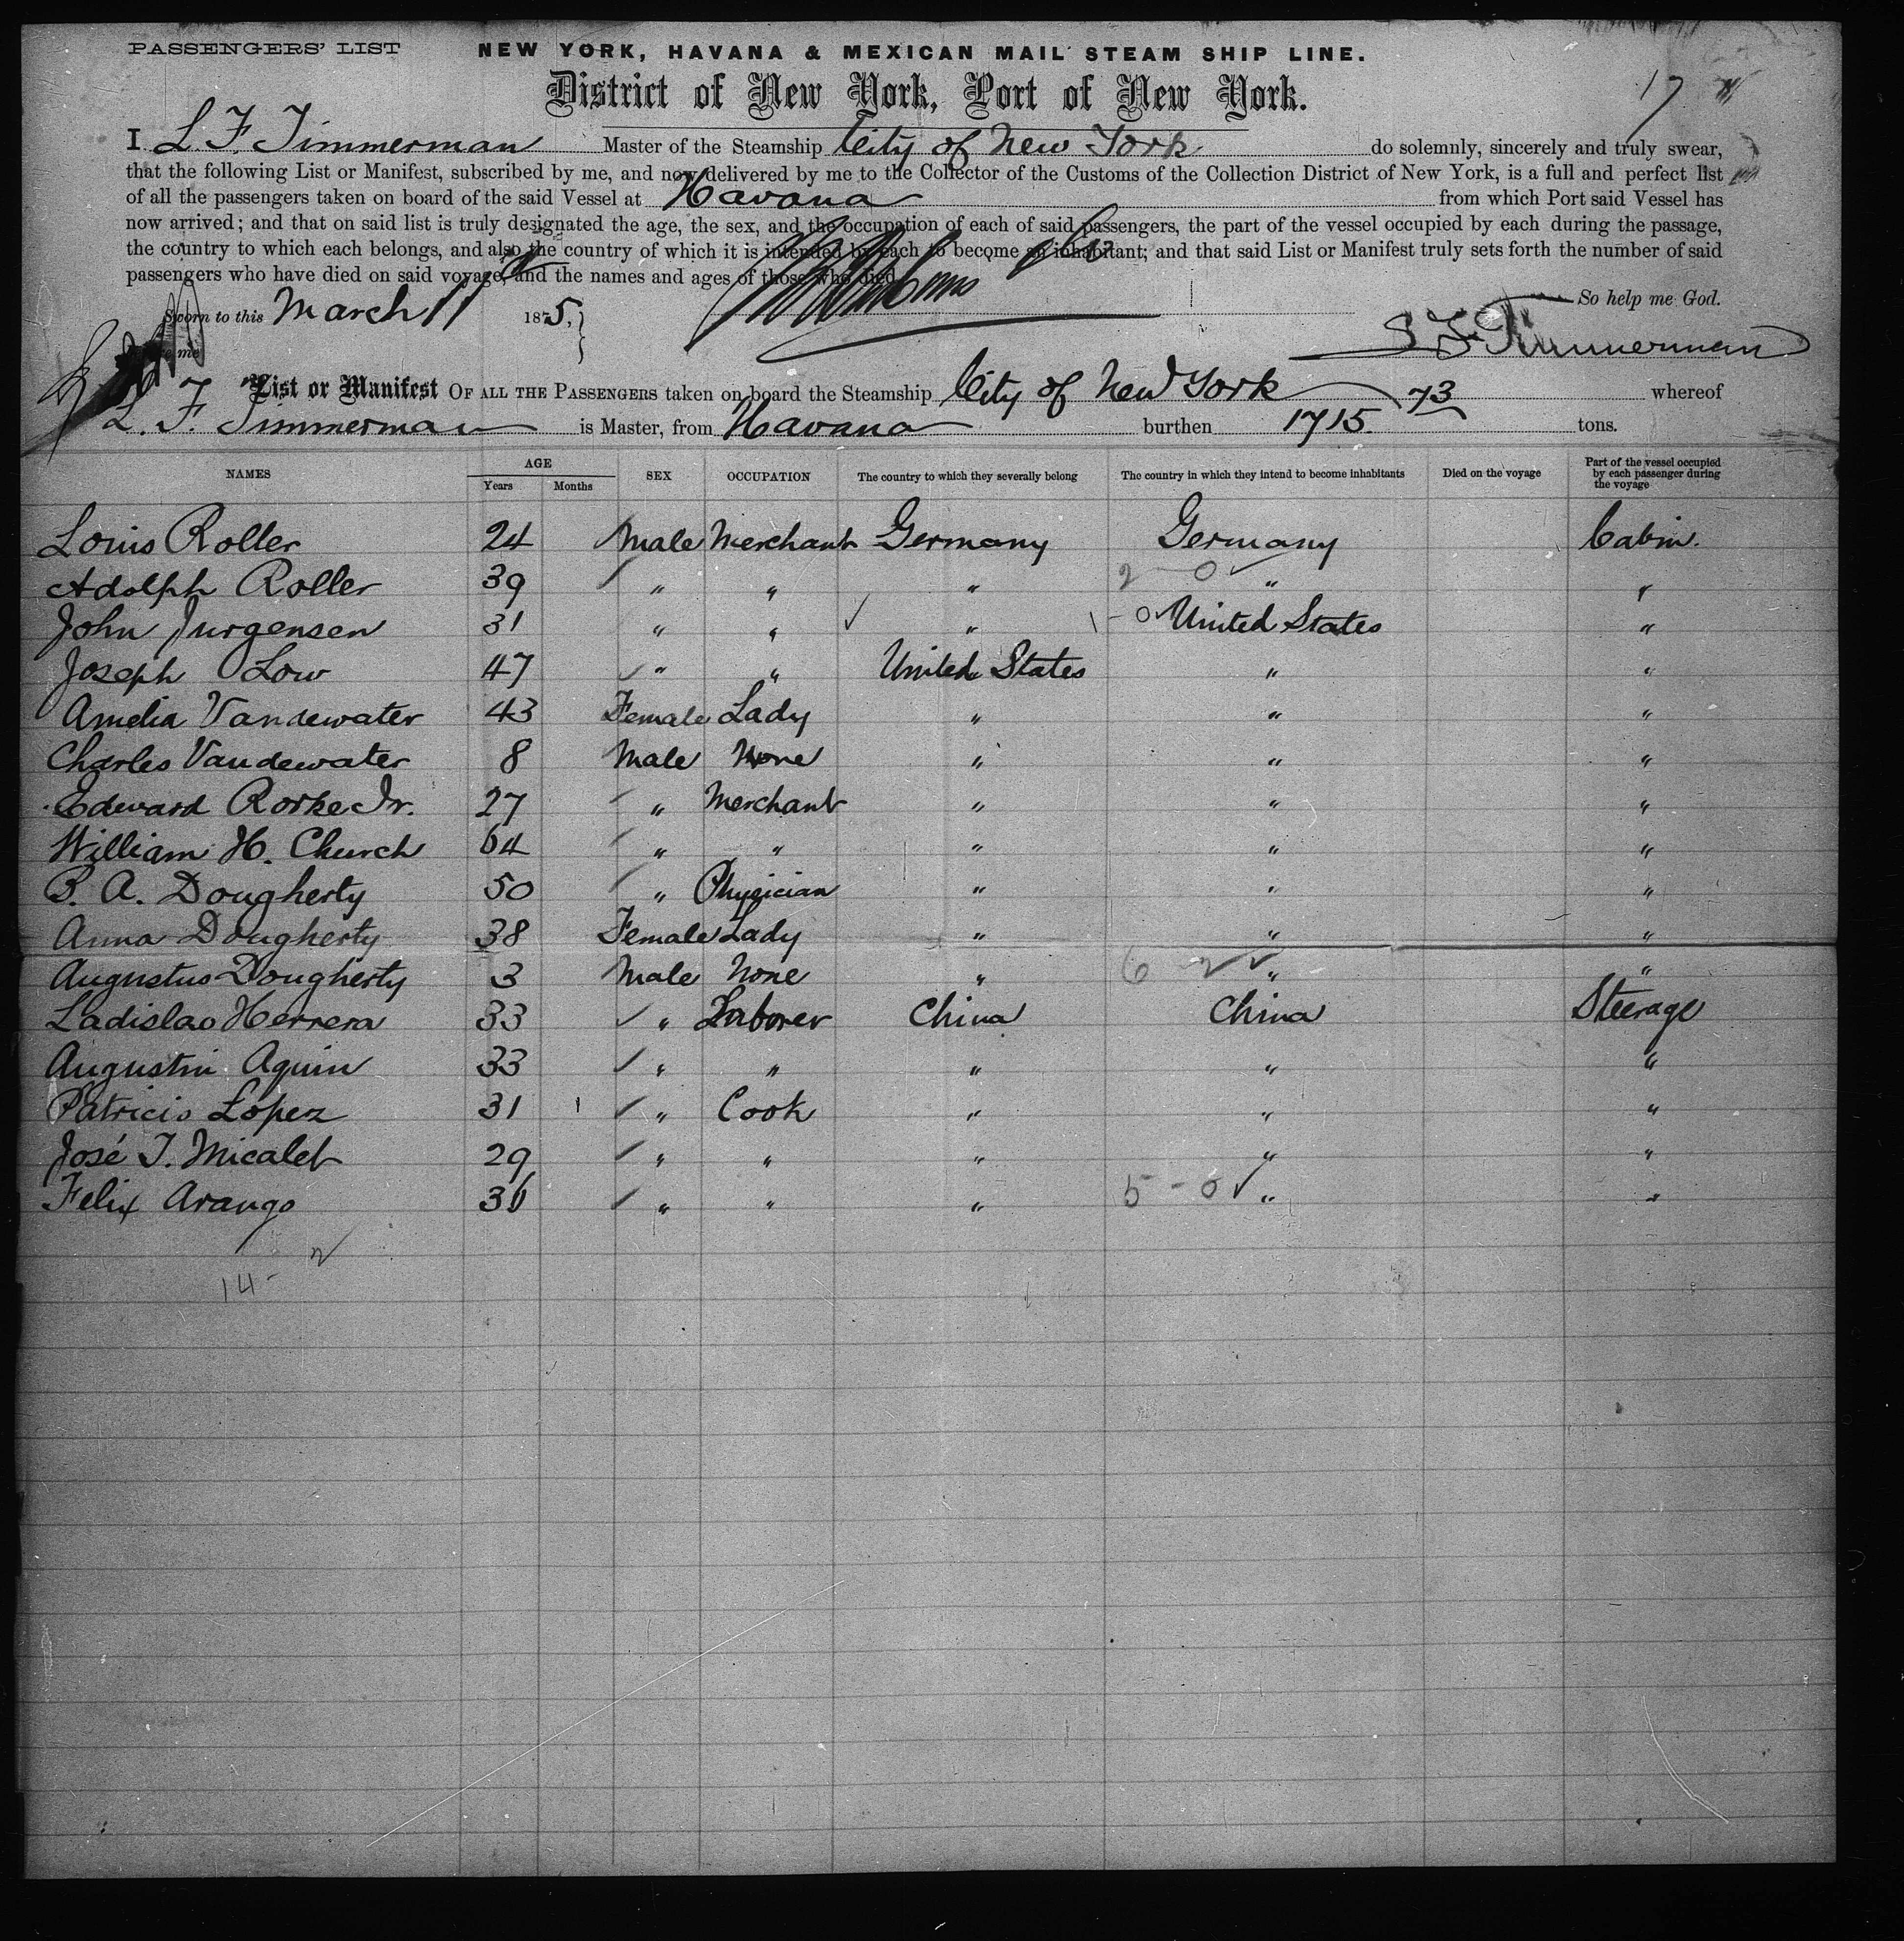 PASSENGERS' LIST NEW YORK, HAVANA & MEXICAN MAIL STEAM SHIP LINE.
District of New York, Port of New York.
17
I L. F. Timmerman Master of the Steamship City of New York do solemnly, sincerely and truly swear,
that the following List or Manifest, subscribed by me, and now delivered by me to the Collector of the Customs of the Collection District of New York, is a full and perfect list
of all the passengers taken on board of the said Vessel at Havana from which Port said Vessel has
now arrived; and that on said list is truly designated the age, the sex, and the occupation of each of said passengers, the part of the vessel occupied by each during the passage,
the country to which each belongs, and also the country of which it is intended by each to become an inhabitant; and that said List or Manifest truly sets forth the number of said
passengers who have died on said voyage, and the names and ages of those who died.
So help me God.
Sworn to this March 11 1875,
me
L F Timmerman
List or Manifest OF ALL THE PASSENGERS taken on board the Steamship City of New York 73 whereof
L. F. Timmerman is Master, from Havana burthen 1715 tons.
NAMES AGE Years Months SEX OCCUPATION The country to which they severally belong The country in which they intend to become inhabitants Died on the voyage Part of the vessel occupied by each passenger during the voyage
Louis Roller 24 Male Merchant Germany Germany Cabin.
Adolph Roller 39 " " " 2 - 0 " "
John Jurgensen 31 " " " 1 - 0 United States "
Joseph Low 47 " " United States " "
Amelia Vandewater 43 Female Lady " " "
Charles Vandewater 8 Male None " " "
Edward Rorke Jr. 27 " Merchant " " "
William H. Church 64 " " " " "
B. A. Dougherty 50 " Physician " " "
Anna Dougherty 38 Female Lady " " "
Augustus Dougherty 3 Male None " 6 - 2 " "
Ladislao Herrera 33 " Laborer China China Steerage
Augustin Aquin 33 " " " " "
Patricio Lopez 31 1 " Cook " " "
José T. Micalet 29 " " " " "
Felix Arango 36 " " " 5 - 0 " "
14 - 2